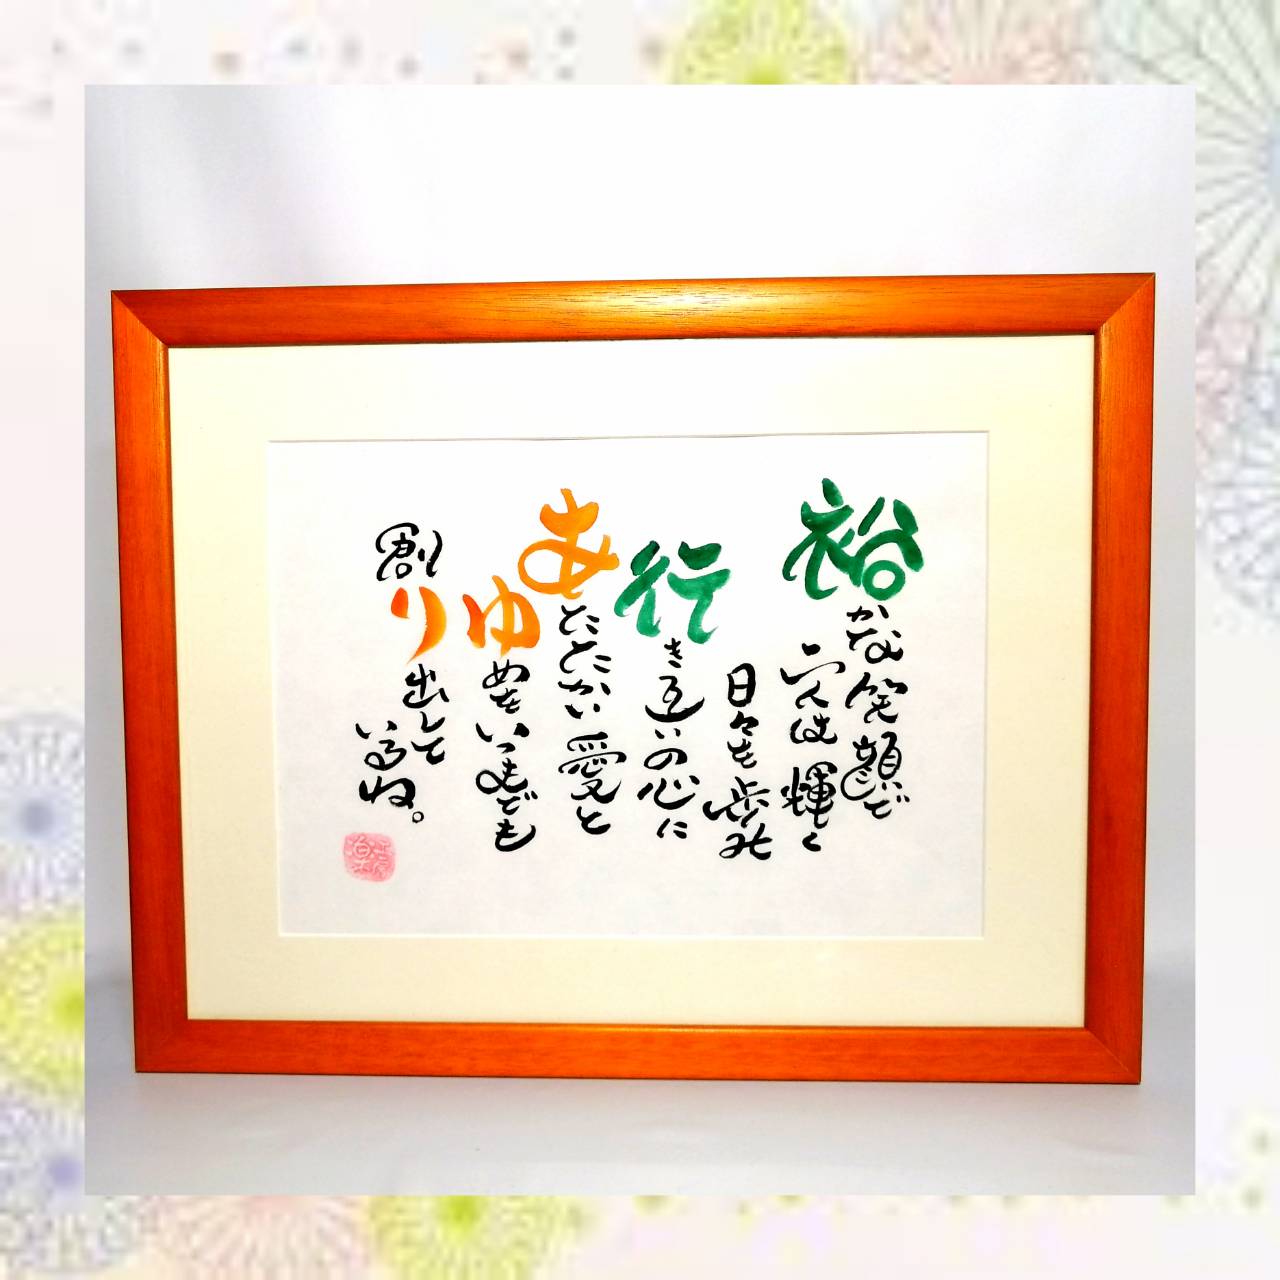 裕かな笑顔で
二人は輝く
日々を歩み
行き交いの心に
あたたかい愛と
ゆめをいつまでも
創り出して
いるね。